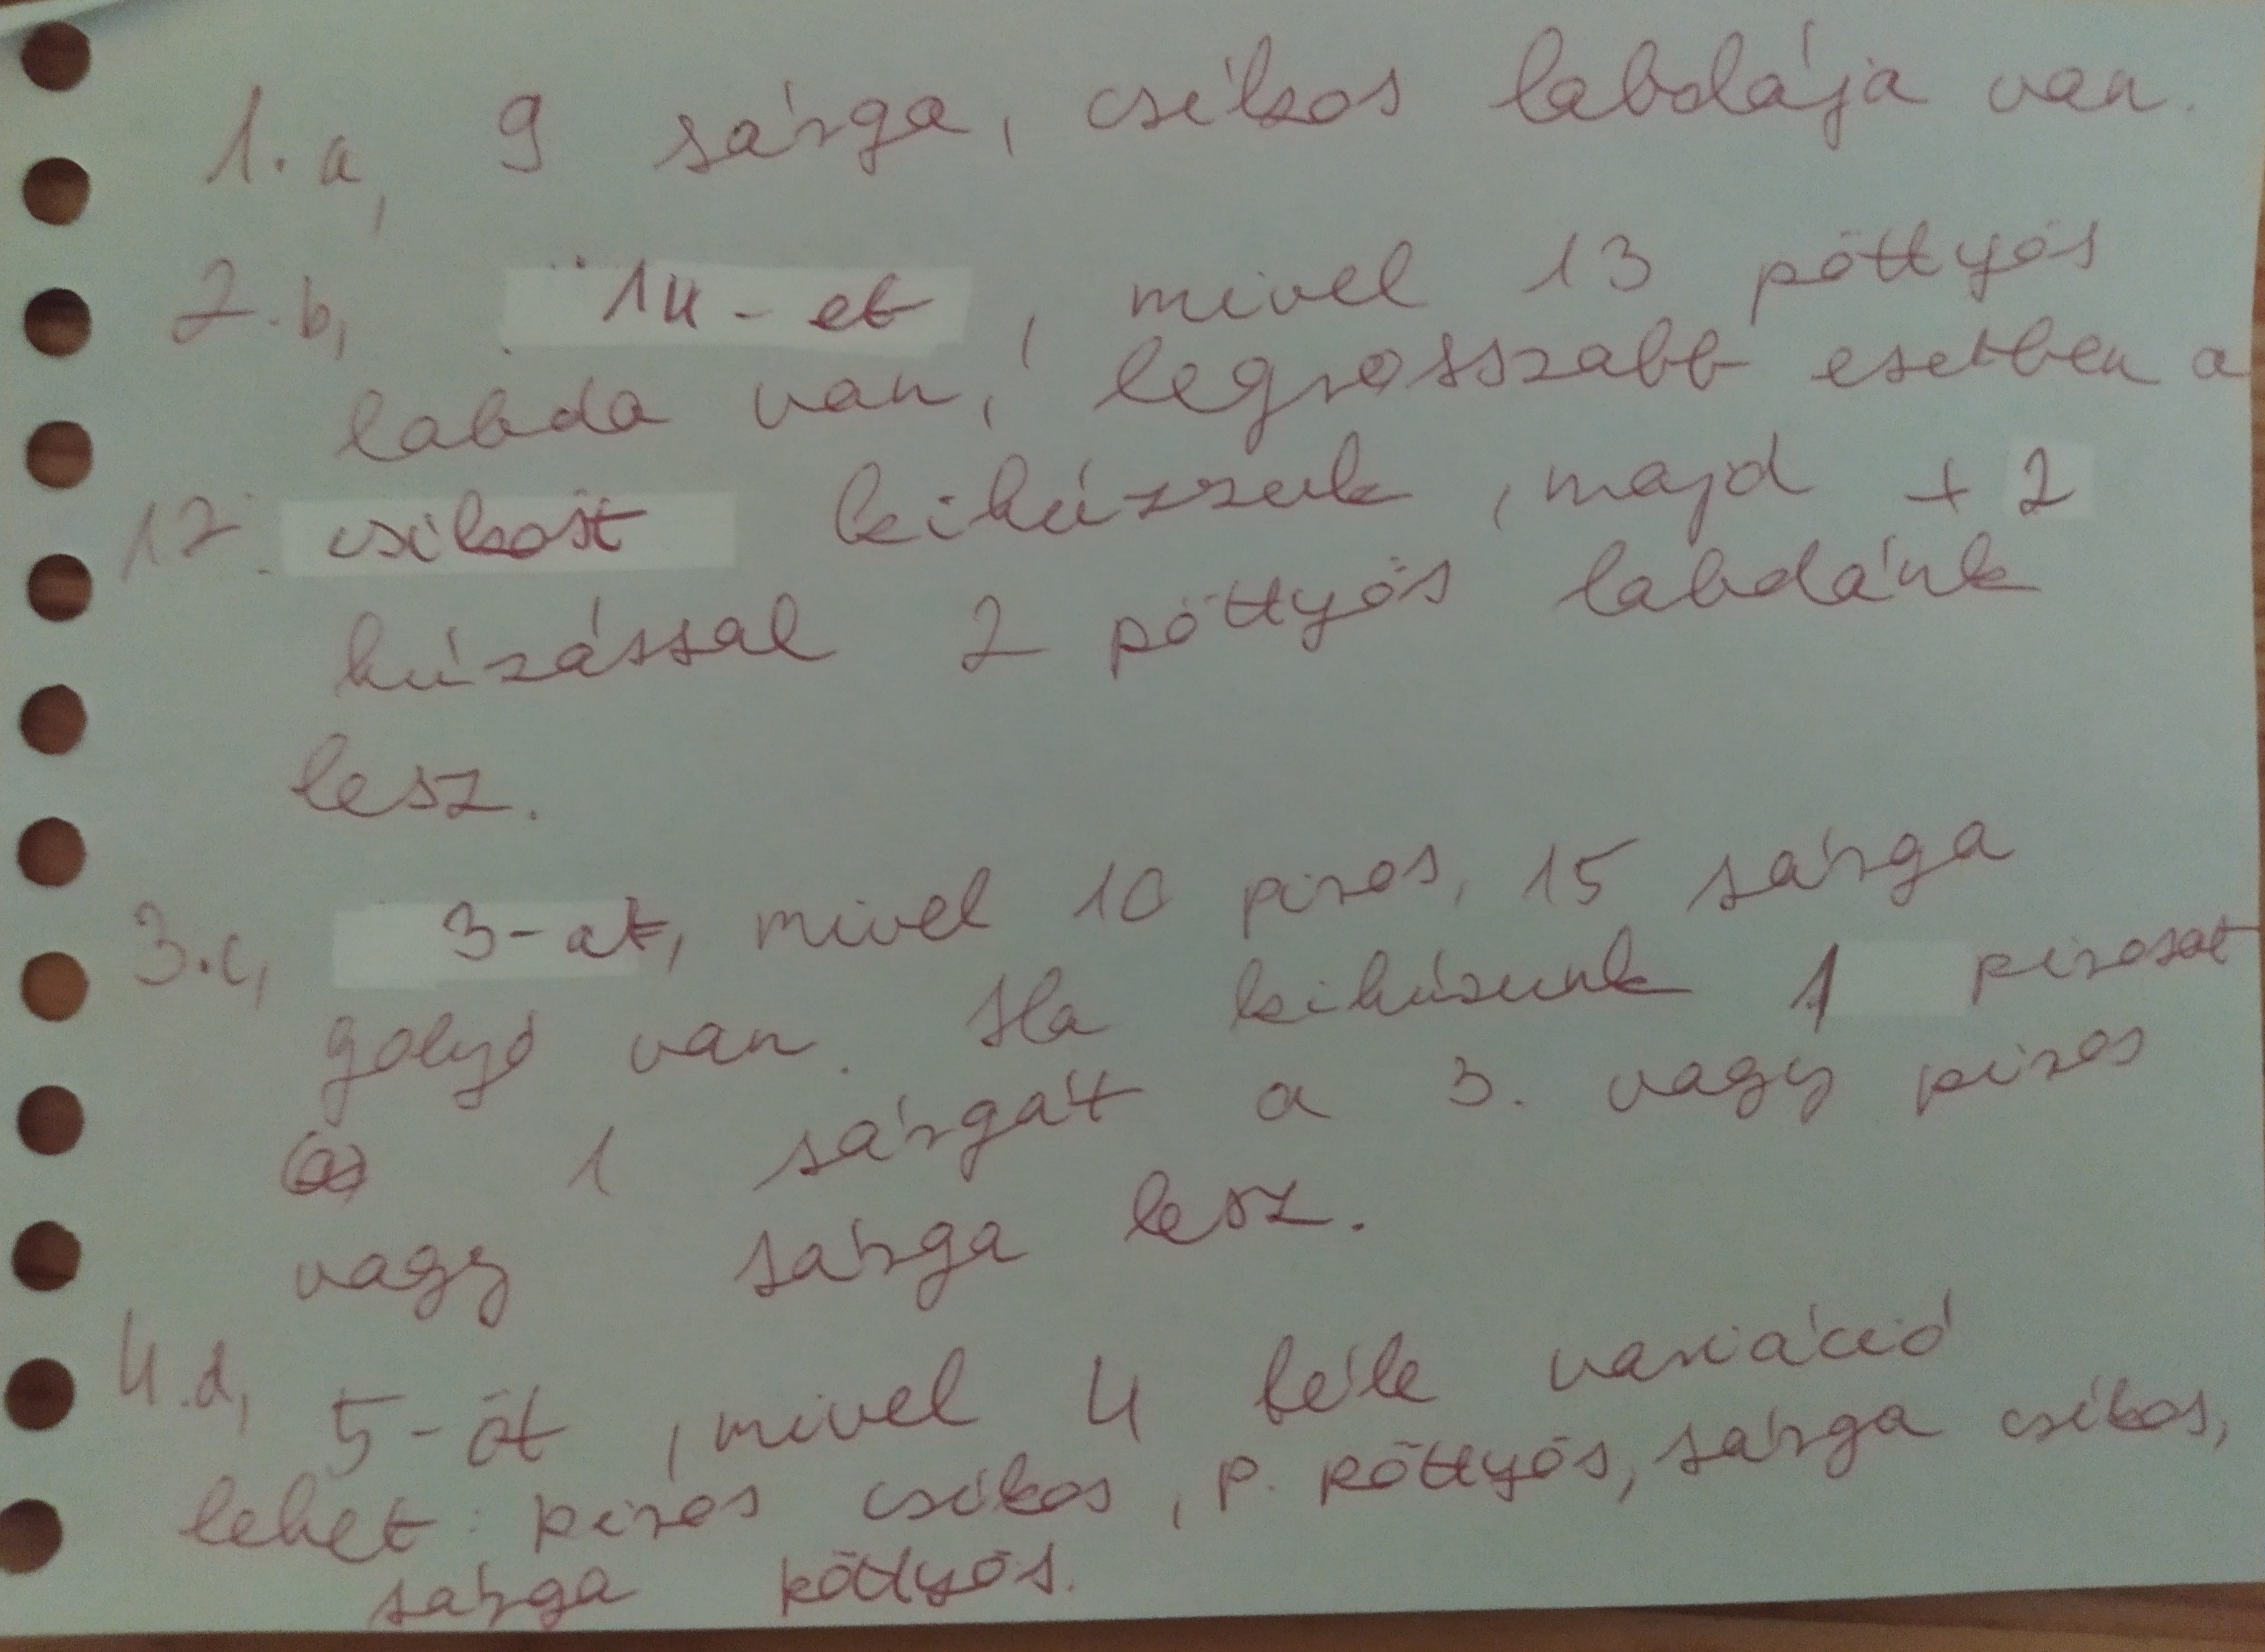 1. a, 9 sárga, csíkos labdája van.
2. b, 14-et, mivel 13 pöttyös
labda van, legrosszabb esetben a
12 csíkost kihúzzuk, majd + 2
húzással 2 pöttyös labdánk
lesz.
3. c, 3-at, mivel 10 piros, 15 sárga
golyó van. Ha kihúzunk 1 pirosat
1 sárgát a 3. vagy piros
vagy sárga lesz.
4. d, 5-öt, mivel 4 féle variáció
lehet: piros csíkos, p. pöttyös, sárga csíkos,
sárga pöttyös.